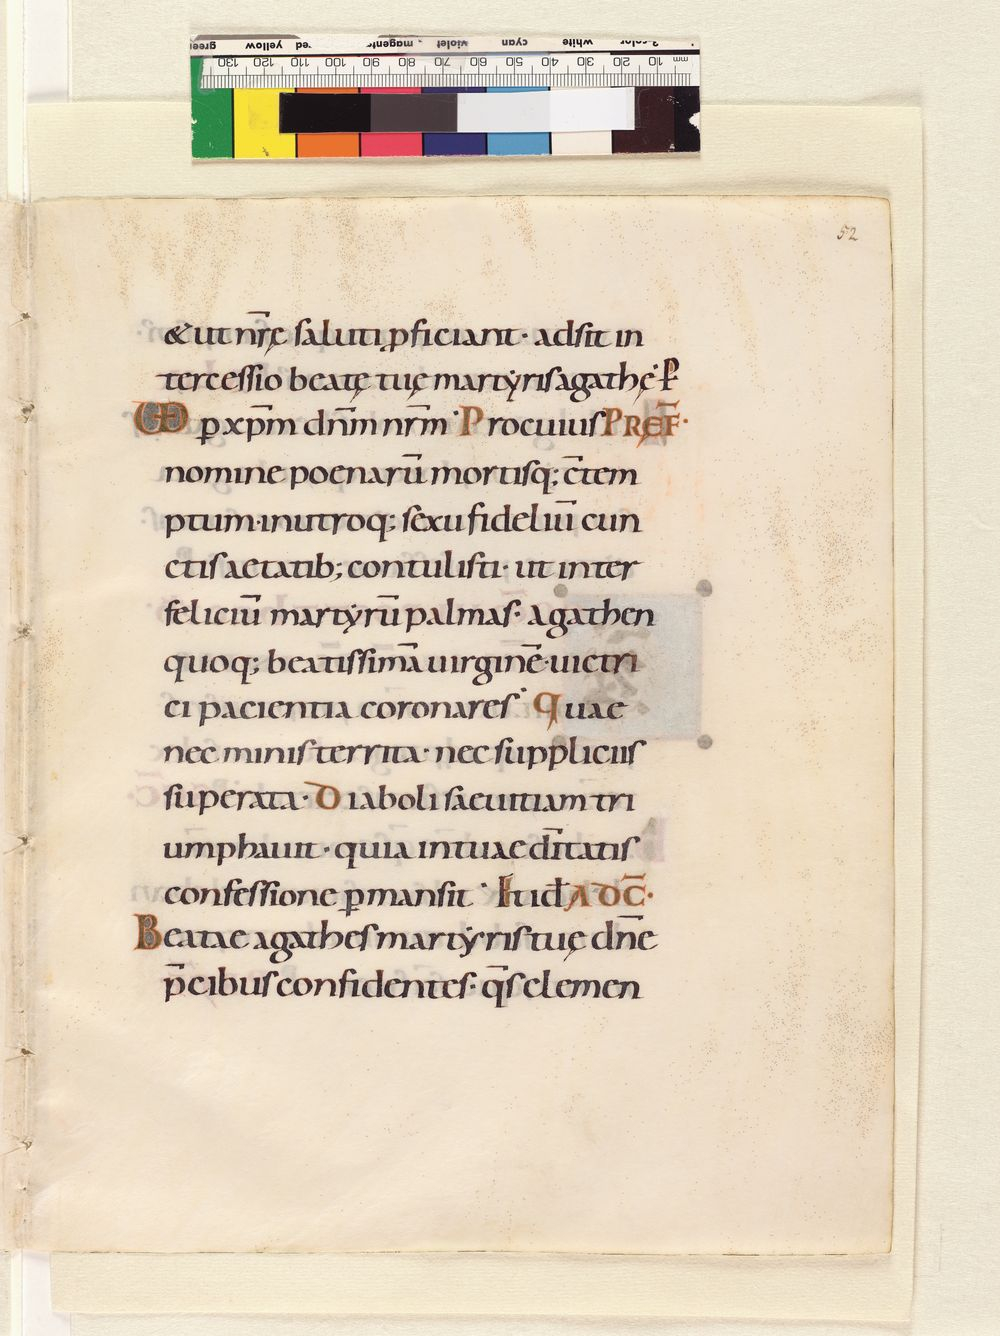 green yellow red magenta violet cyan white 3-color
130 120 110 100 90 80 70 60 50 40 30 20 10 mm
52
& ut nr̄ę saluti ꝓficiant· adsit in
tercessio beatę tuę martẏris agathę·
ꝑ xp̄m dn̄m nr̄m· Pro cuius PREF̄·
nomine poenarū mortisq; c̄tem
ptum· in utroq; sexu fideliū cun
ctis aetatib; contulisti· ut inter
feliciū martẏrū palmas· agathen
quoq; beatissimā uirginē· uictri
ci pacientia coronares· Quae
nec minis territa· nec suppliciis
superata· Diaboli saeuitiam tri
umphauit· quia in tuae dītatis
confessione ꝑmansit· AD C̄·
Beatae agathes martẏris tuę dn̄e
p̄cibus confidentes· q̄s clemen